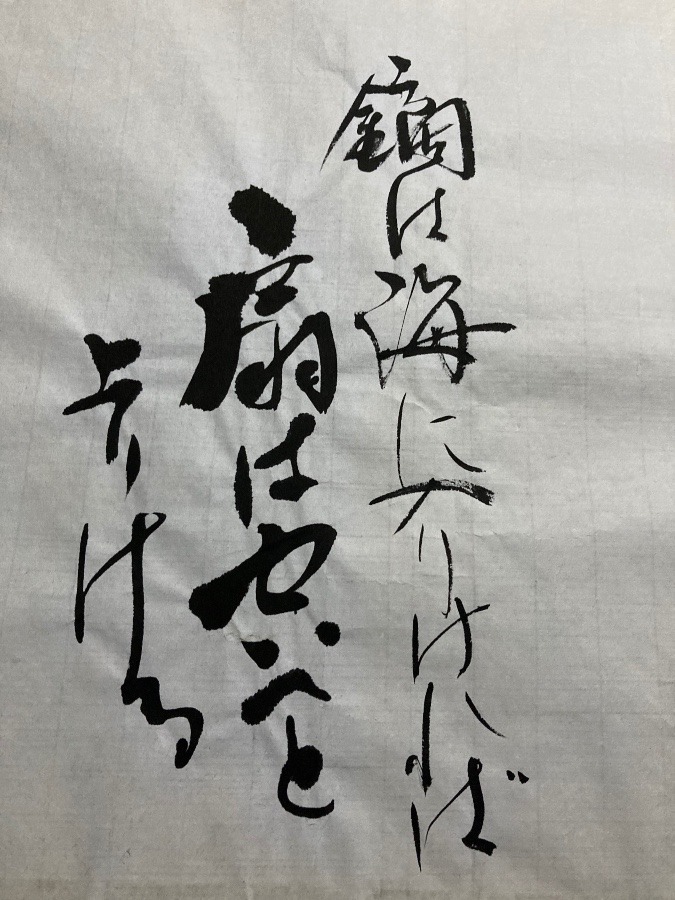 鏑は海に入りければ
扇は空へと
上りける